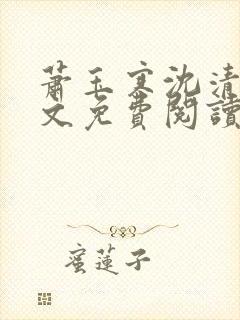 蕭玉寒沈清
文免費閱讀
蜜蓮子